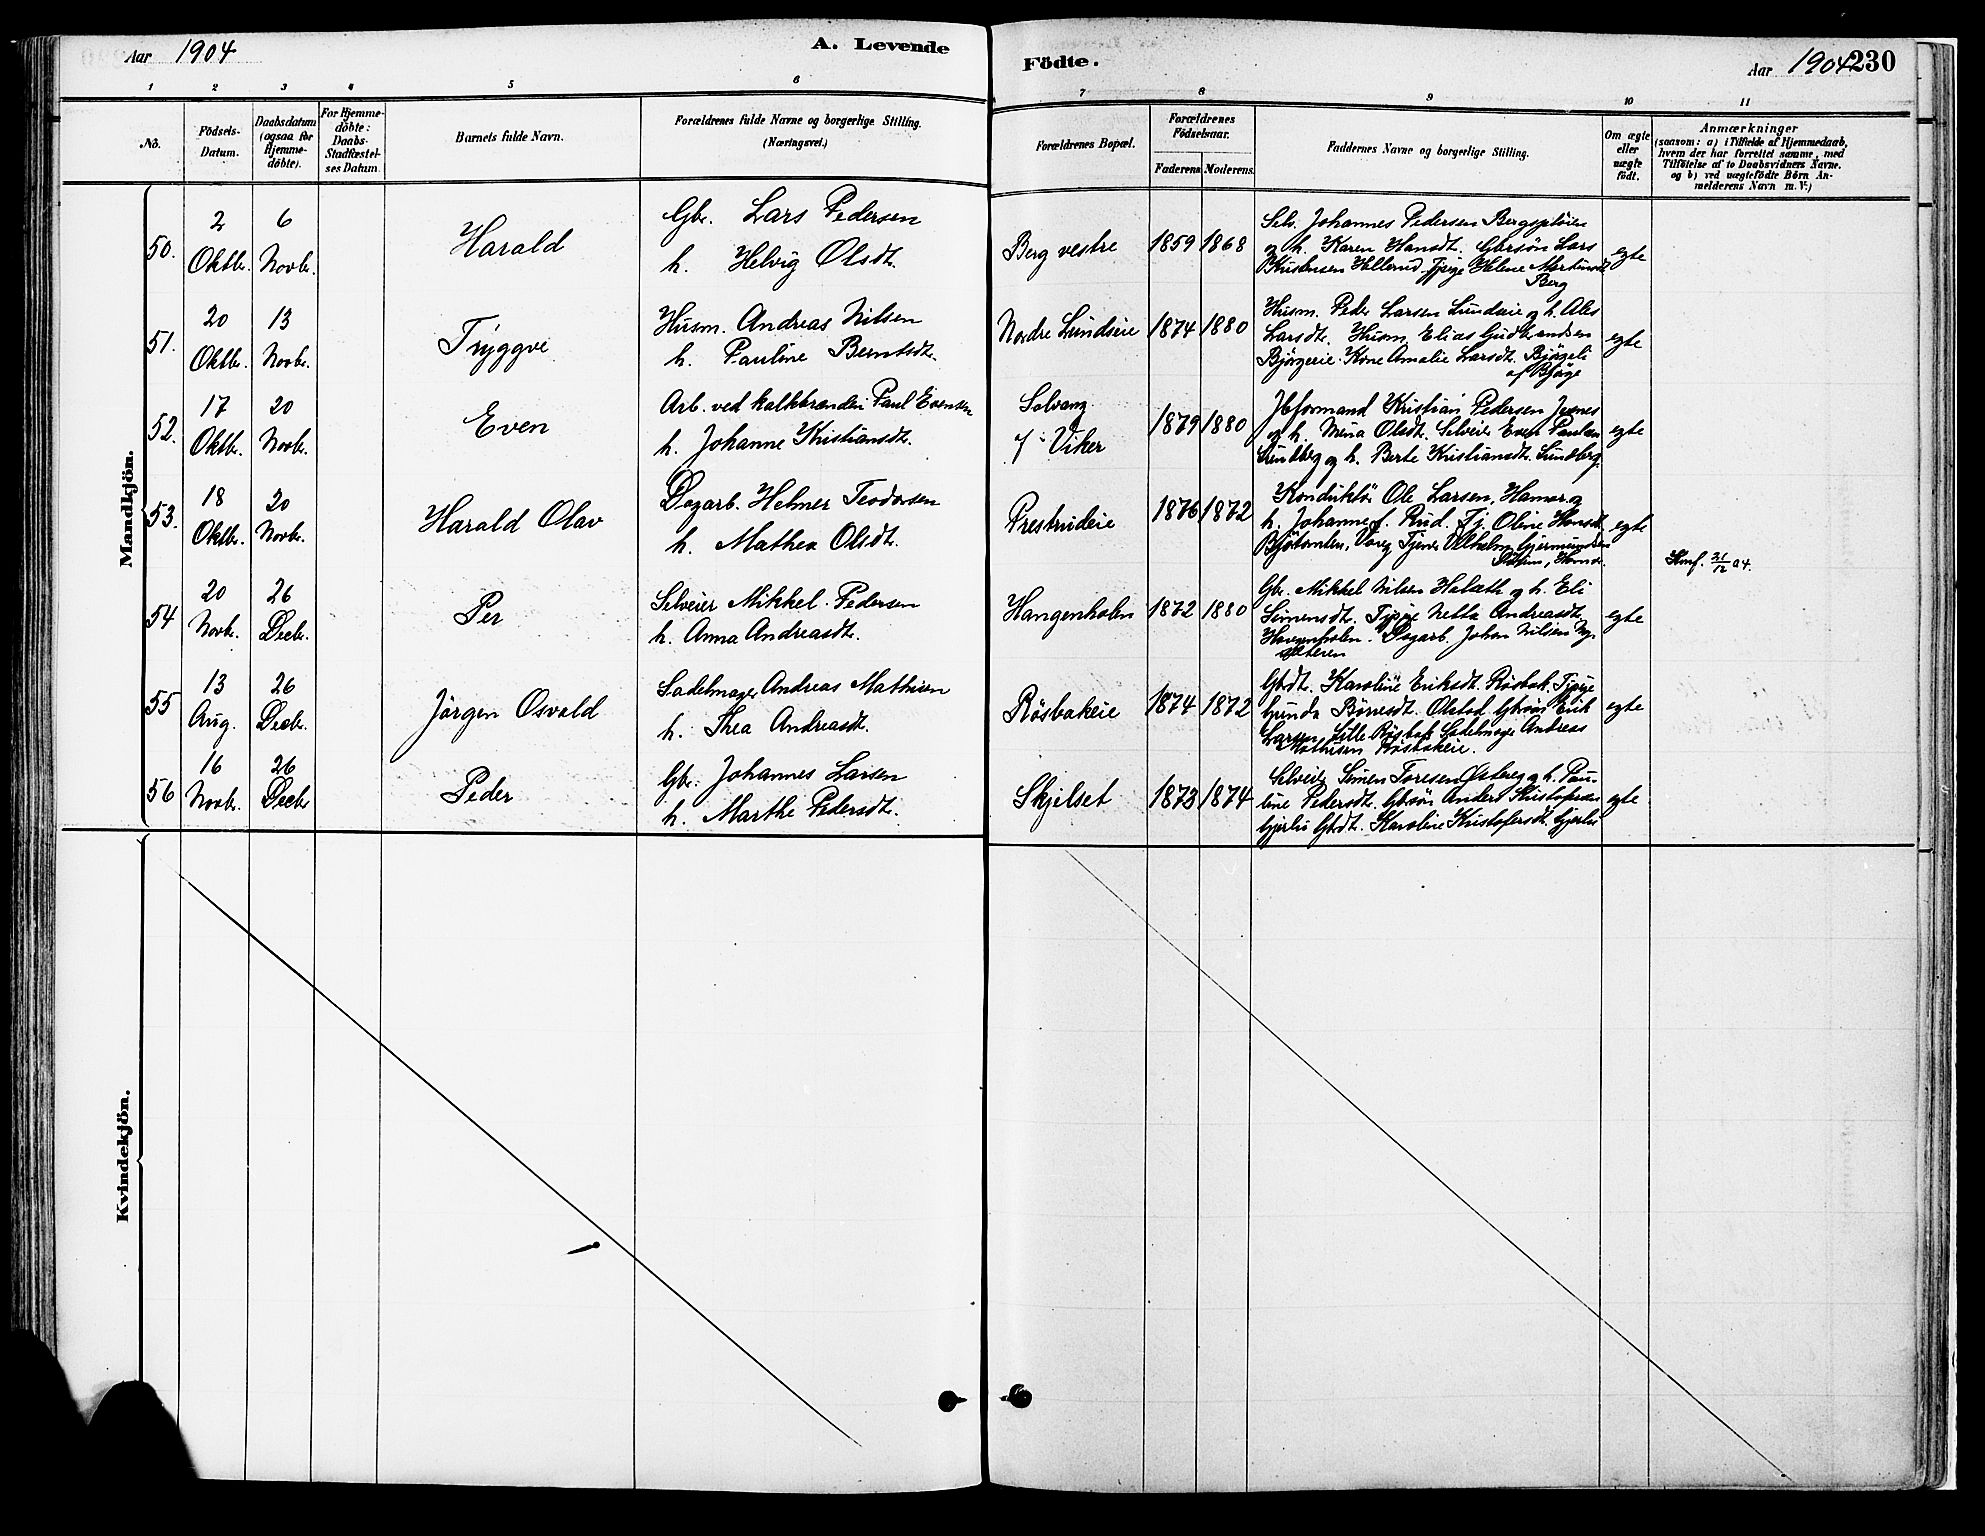 Aar 1904
A. Levende
Födte.
Aar 1904 230
1 2 3 4 5 6
7 8 9 10 11
No.
Födsels-
Datum.
Daabsdatum
(ogsaa for
Hjemme-
döbte).
For Hjemme-
döbte:
Daabs-
Stadfæstel-
ses Datum.
Barnets fulde Navn.
Forældrenes fulde Navne og borgerlige Stilling.
(Næringsvei.)
Forældrenes Bopæl.
Forældrenes
Födselsaar.
Faderens
Moderens.
Faddernes Navne og borgerlige Stilling.
Om ægte
eller
uægte
födt.
Anmærkninger
(saasom: a) i Tilfælde af Hjemmedaab,
hvem der har forrettet samme, med
Tilföielse af to Daabsvidners Navne.
og b) ved uægtefödte Börn An-
melderens Navn m. V.)
Mandkjön.
50.
2
Oktbr.
6
Novbr.
Harald
Gbr. Lars Pedersen
h. Helvig Olsdt.
Berg vestre
1859
1868
Selv. Johannes Pedersen Bergspløien
og h. Karen Hansdt. Gbrsøn Lars
Kristensen Hellerud. Tjpige Helene Martinsdt
Berg
egte
51.
20
Oktbr.
13
Novbr.
Tryggve
Husm. Andreas Nilsen
h. Pauline Berntsdt.
Nordre Lundseie
1874
1880
Husm. Peder Larsen Lundeie og h. Ales
Larsdt. Husm. Elias Gudbrandsen
Bjørgeeie. Kone Amalie Larsdt. Bjørgeli
af Bjørge
egte
52.
17
Oktbr.
20
Novbr.
Even
Arb. ved kalkbrænderi Paul Evensen
h. Johanne Kristiansdt.
Solvang
Viker
1879
1880
Jbformand Kristian Pedersen Jesnes
og h. Mina Olsdt. Selveier Even Paulsen
Sundberg og h. Berte Kristiansdt. Sundberg.
egte
53.
18
Oktbr.
20
Novbr.
Harald Olav
Dagarb. Helmer Teodorsen
h. Mathea Olsdt.
Prestrudeie
1876
1872
Konduktør Ole Larsen, Hamar og
h. Johanne f. Rud. Tj. Oline Hansdt.
Vang Tjener Vilhelm Gjermundsen
egte
Konf. 21/12 04.
54
20
Novbr.
26
Decbr.
Per
Selveier Mikkel Pedersen
h. Anna Andreasdt.
Hangenholen
1872
1880
Gbr. Mikkel Nilsen Halseth og h. Eli
Simensdt. Tjpige Netta Andreasdt.
Dagarb. Johan Nilsen Ny-
sæteren
egte
55
13
Aug.
26
Decbr.
Jørgen Osvald
Sadelmager Andreas Mathisen
h. Thea Andreasdt.
Røsbakeie
1874
1872
Gbrdt. Karoline Eriksdt. Røsbak. Tjpige
Gunda Børresdt. Olstad. Gbrsøn Erik
Larsen Lille Røsbak Sadelmager Andreas
Mathisen Røsbakeie.
egte
56
16
Novbr.
26
Decbr
Peder
Gbr. Johannes Larsen
h. Marthe Pedersdt.
Skjelset
1873
1874
Selveier Simen Toresen Østereg og h. Pau-
line Pedersdt. Gbrsøn Anders Kristofersen
Gjerlu Gbrdt. Karoline Kristofersdt. Gjerlu
egte
Kvindekjön.